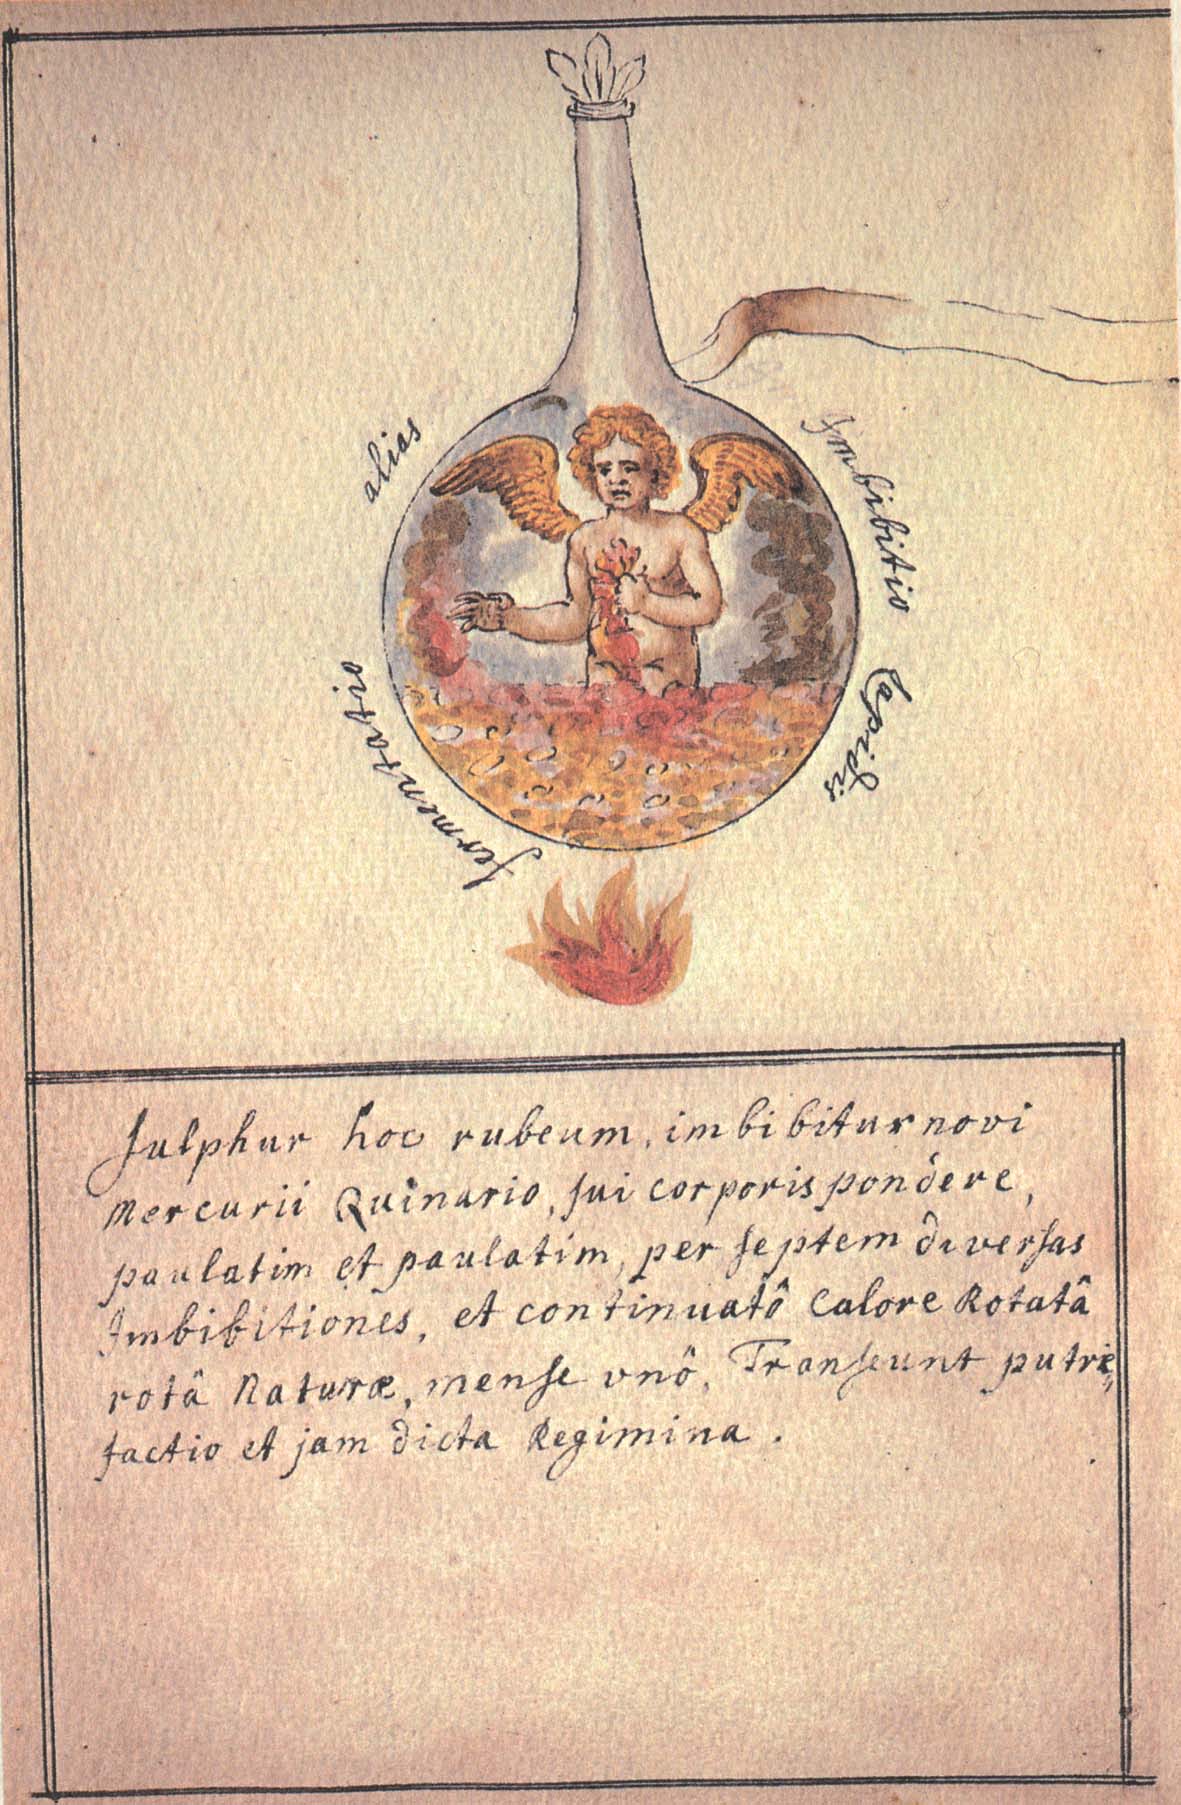 alias
Imbibitio
Lapidis
fermentatio
Sulphur hoc rubeum, imbibitur novi
Mercurii Quinario, sui corporis pondere,
paulatim et paulatim, per septem diversas
Imbibitiones, et continuatô Calore Rotatâ
rotâ Naturæ, mense vnô, Transeunt putre„
factio et jam dicta Regimina.